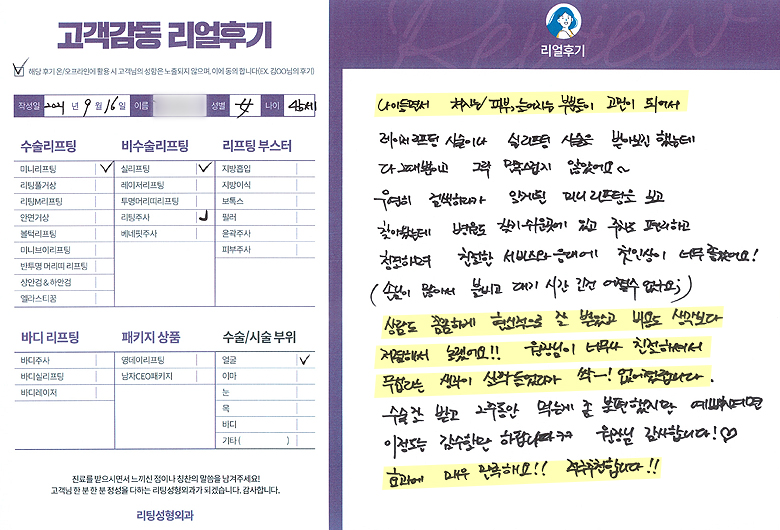 고객감동 리얼후기
해당 후기 온/오프라인에 활용 시 고객님의 성함은 노출되지 않으며, 이에 동의 합니다(EX. 김OO님의 후기)
작성일 2021 년 9 월 16 일 이름 성별 女 나이 45세
수술리프팅
미니리프팅
리팅풀거상
리팅M리프팅
안면거상
볼턱리프팅
미니브이리프팅
반투명 머리띠 리프팅
상안검 & 하안검
엘라스티꿈
비수술리프팅
실리프팅
레이저리프팅
투명머리띠리프팅
리팅주사
베네핏주사
리프팅 부스터
지방흡입
지방이식
보톡스
필러
윤곽주사
피부주사
바디 리프팅
바디주사
바디실리프팅
바디레이저
패키지 상품
영데이리프팅
남자CEO패키지
수술/시술 부위
얼굴
이마
눈
목
바디
기타 ( )
진료를 받으시면서 느끼신 점이나 칭찬의 말씀을 남겨주세요!
고객님 한 분 한 분 정성을 다하는 리팅성형외과가 되겠습니다. 감사합니다.
리팅성형외과
Review
리얼후기
나이들면서 처지는 피부, 늘어지는 볼볼이 고민이 되어서
레이저리프팅 시술이나 실리프팅 시술은 받아보긴 했는데
다 그때뿐이고 그닥 만족스럽지 않았어요~
우연히 검색하다가 알게된 미니리프팅을 보고
찾아왔는데 병원도 찾기 쉬운곳에 있고 주차도 편리하고
청결하며 친절한 서비스와 응대에 첫인상이 너무 좋았어요!
(손님이 많아서 붐비고 대기 시간 긴건 어쩔수 없나요;)
상담도 꼼꼼하게 현실적으로 잘 받았고 비용도 생각보다
저렴해서 놀랬어요!! 원장님이 너무나 친절하셔서
무섭다는 생각이 싹 들었다가 싹~! 없어졌답니다.
수술 잘 받고 2주동안 먹는게 좀 불편했지만 예뻐지려면
이정도는 감수할만 하답니다ㅋㅋ 원장님 감사합니다!♡
효과에 매우 만족해요!! 적극추천합니다!!